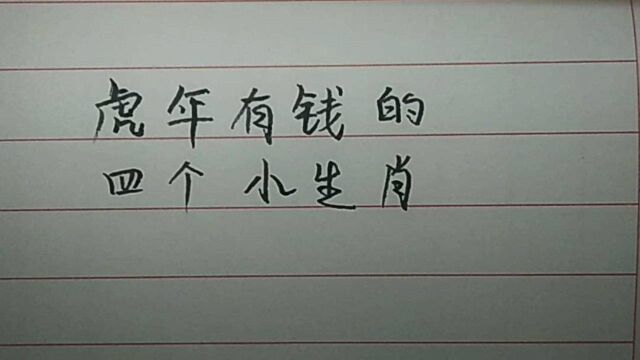 虎年有钱的
四个小生肖